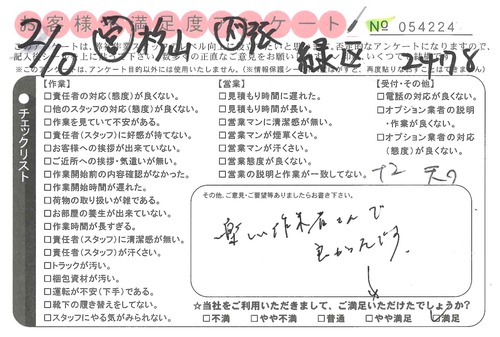 お客様満足度アンケート
№ 054224
2/10
緑区
チェックリスト
【作業】
□責任者の対応(態度)が良くない。
□他のスタッフの対応(態度)が良くない。
□作業を見ていて不安がある。
□責任者(スタッフ)に好感が持てない。
□お客様への挨拶が出来ていない。
□ご近所への挨拶・気遣いが無い。
□作業開始前の内容確認がなかった。
□作業開始時間が遅れた。
□荷物の取り扱いが雑である。
□お部屋の養生が出来ていない。
□作業時間が長すぎる。
□責任者(スタッフ)に清潔感が無い。
□責任者(スタッフ)が汗くさい。
□トラックが汚い。
□梱包資材が汚い。
□運転が不安(下手)である。
□靴下の履き替えをしてない。
□スタッフにやる気がみられない。
【営業】
□見積もり時間に遅れた。
□見積もり時間が長い。
□営業マンに清潔感が無い。
□営業マンが煙草くさい。
□営業マンが汗くさい。
□営業態度が良くない。
□営業の説明と作業が一致してない。
【受付・その他】
□電話の対応が良くない。
□オプション業者の説明
・作業が良くない。
□オプション業者の対応
(態度)が良くない。
その他、ご意見・ご要望等ありましたらお書き下さい。
楽しい作業員さんで
良かったです。
☆当社をご利用いただきまして、ご満足いただけたでしょうか?
□不満 □やや不満 □普通 □やや満足 ☑満足